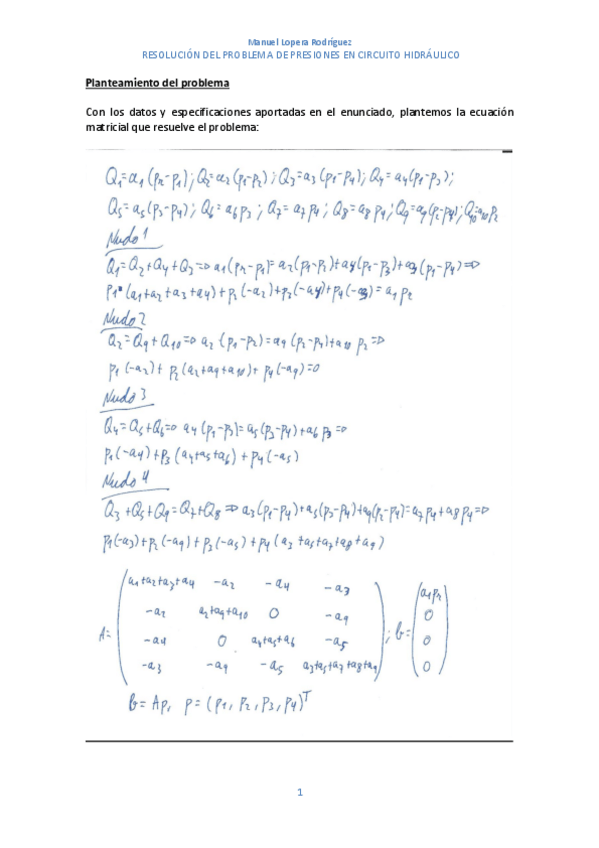 Manuel Lopera Rodríguez
RESOLUCIÓN DEL PROBLEMA DE PRESIONES EN CIRCUITO HIDRÁULICO
Planteamiento del problema
Con los datos y especificaciones aportadas en el enunciado, plantemos la ecuación
matricial que resuelve el problema:
Q1=a1(pr-p1); Q2=a2(p1-p2); Q3=a3(p1-p4); Q4=a4(p1-p3);
Q5=a5(p3-p4); Q6=a6p3; Q7=a7p4; Q8=a8p4; Q9=a9(p2-p4); Q10=a10p2
Nudo 1
Q1=Q2+Q4+Q3=>a1(pr-p1)=a2(p1-p2)+a4(p1-p3)+a3(p1-p4)=>
p1·(a1+a2+a3+a4)+p2(-a2)+p3(-a4)+p4(-a3)=a1pr
Nudo 2
Q2=Q9+Q10=>a2·(p1-p2)=a9(p2-p4)+a10p2=>
p1(-a2)+p2(a2+a9+a10)+p4(-a9)=0
Nudo 3
Q4=Q5+Q6=>a4(p1-p3)=a5(p3-p4)+a6p3=>
p1(-a4)+p3(a4+a5+a6)+p4(-a5)
Nudo 4
Q3+Q5+Q9=Q7+Q8=>a3(p1-p4)+a5(p3-p4)+a9(p2-p4)=a7p4+a8p4=>
p1(-a3)+p2(-a9)+p3(-a5)+p4(a3+a5+a7+a8+a9)
a1+a2+a3+a4 -a2 -a4 -a3 a1pr
-a2 a2+a9+a10 0 -a9 0
A= -a4 0 a4+a5+a6 -a5 ; b= 0
-a3 -a9 -a5 a3+a5+a7+a8+a9 0
b=Ap, p=(p1,p2,p3,p4)T
1